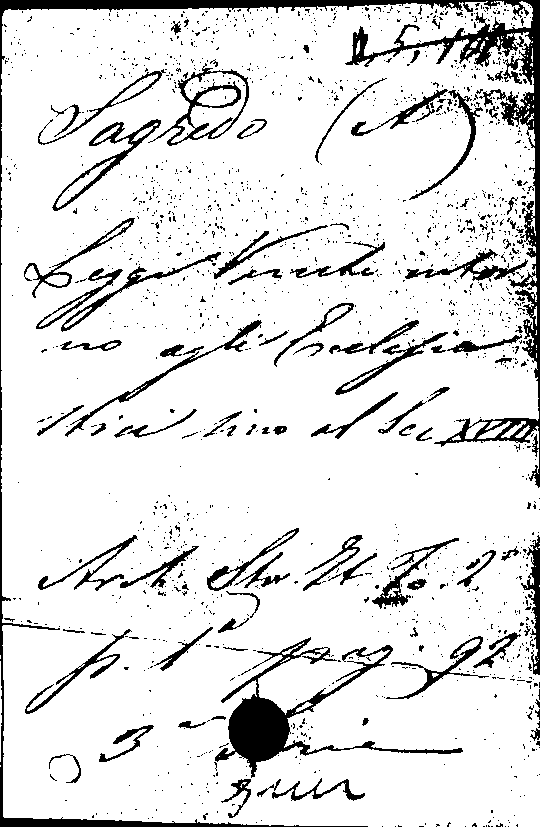 Sagredo (A)
Leggi Venete intor
no agli Ecclesia
stici sino al Sec XVIII
Arch. Stor. It. To. 2°
p. 1ª pag. 92
3ª serie